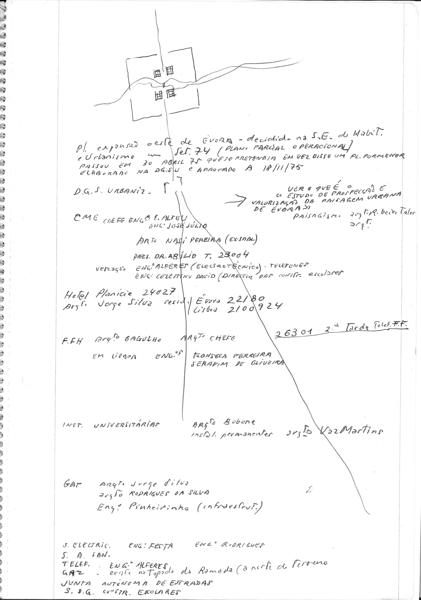 pl expansão oeste de ÉVORA - decidido na S.E. de Habit.
e Urbanismo em Set. 74 (PLANO PARCIAL OPERACIONAL)
PASSOU EM 30 ABRIL 75 QUE SE PRETENDIA EM VEZ DISSO UM PL. PORMENOR
ELABORADO NA DGSU E APROVADO A 18/11/75
D.G.S. URBANIZ.
VER O QUE É O
ESTUDO DE PROSPECÇÃO E
VALORIZAÇÃO DA PAISAGEM URBANA
DE ÉVORA
paisagism. arqt. Ribeiro Teles
arqt.
CME CHEFE ENGº S. ALFEU
ENGº JOSÉ JÚLIO
ARQTO PEREIRA
PRES. DR. ABÍLIO T. 23004
VEREAÇÃO ENGº ALFERES (ELECTROTÉCNICO) - TELEFONES
ENGº CELESTINO DAVID (DIRECÇÃO DAS CONSTR. ESCOLARES
Hotel Planície 24027
Arqto Jorge Silva resid. Évora 22180
Lisboa 2100924
F.F.H ARQTO BAGULHO ARQTO CHEFE
26301 2ª Tarde Telef. F.F.
EM LISBOA ENGºS FONSECA FERREIRA
SERAFIM DE OLIVEIRA
INST. UNIVERSITÁRIAS ARQTO Bobone
instal. permanentes arqto Vaz Martins
GAT arqto Jorge Silva
arqto RODRIGUES DA SILVA
Engº Pinheirinho (infraestrut.)
S. ELECTRIC. ENGº FESTA ENGº RODRIGUES
S. A. SAN.
TELEF. ENGº ALFERES
GAZ : Ramada (a norte do Terreno
JUNTA AUTÓNOMA DE ESTRADAS
S. D. G. CONSTR. ESCOLARES